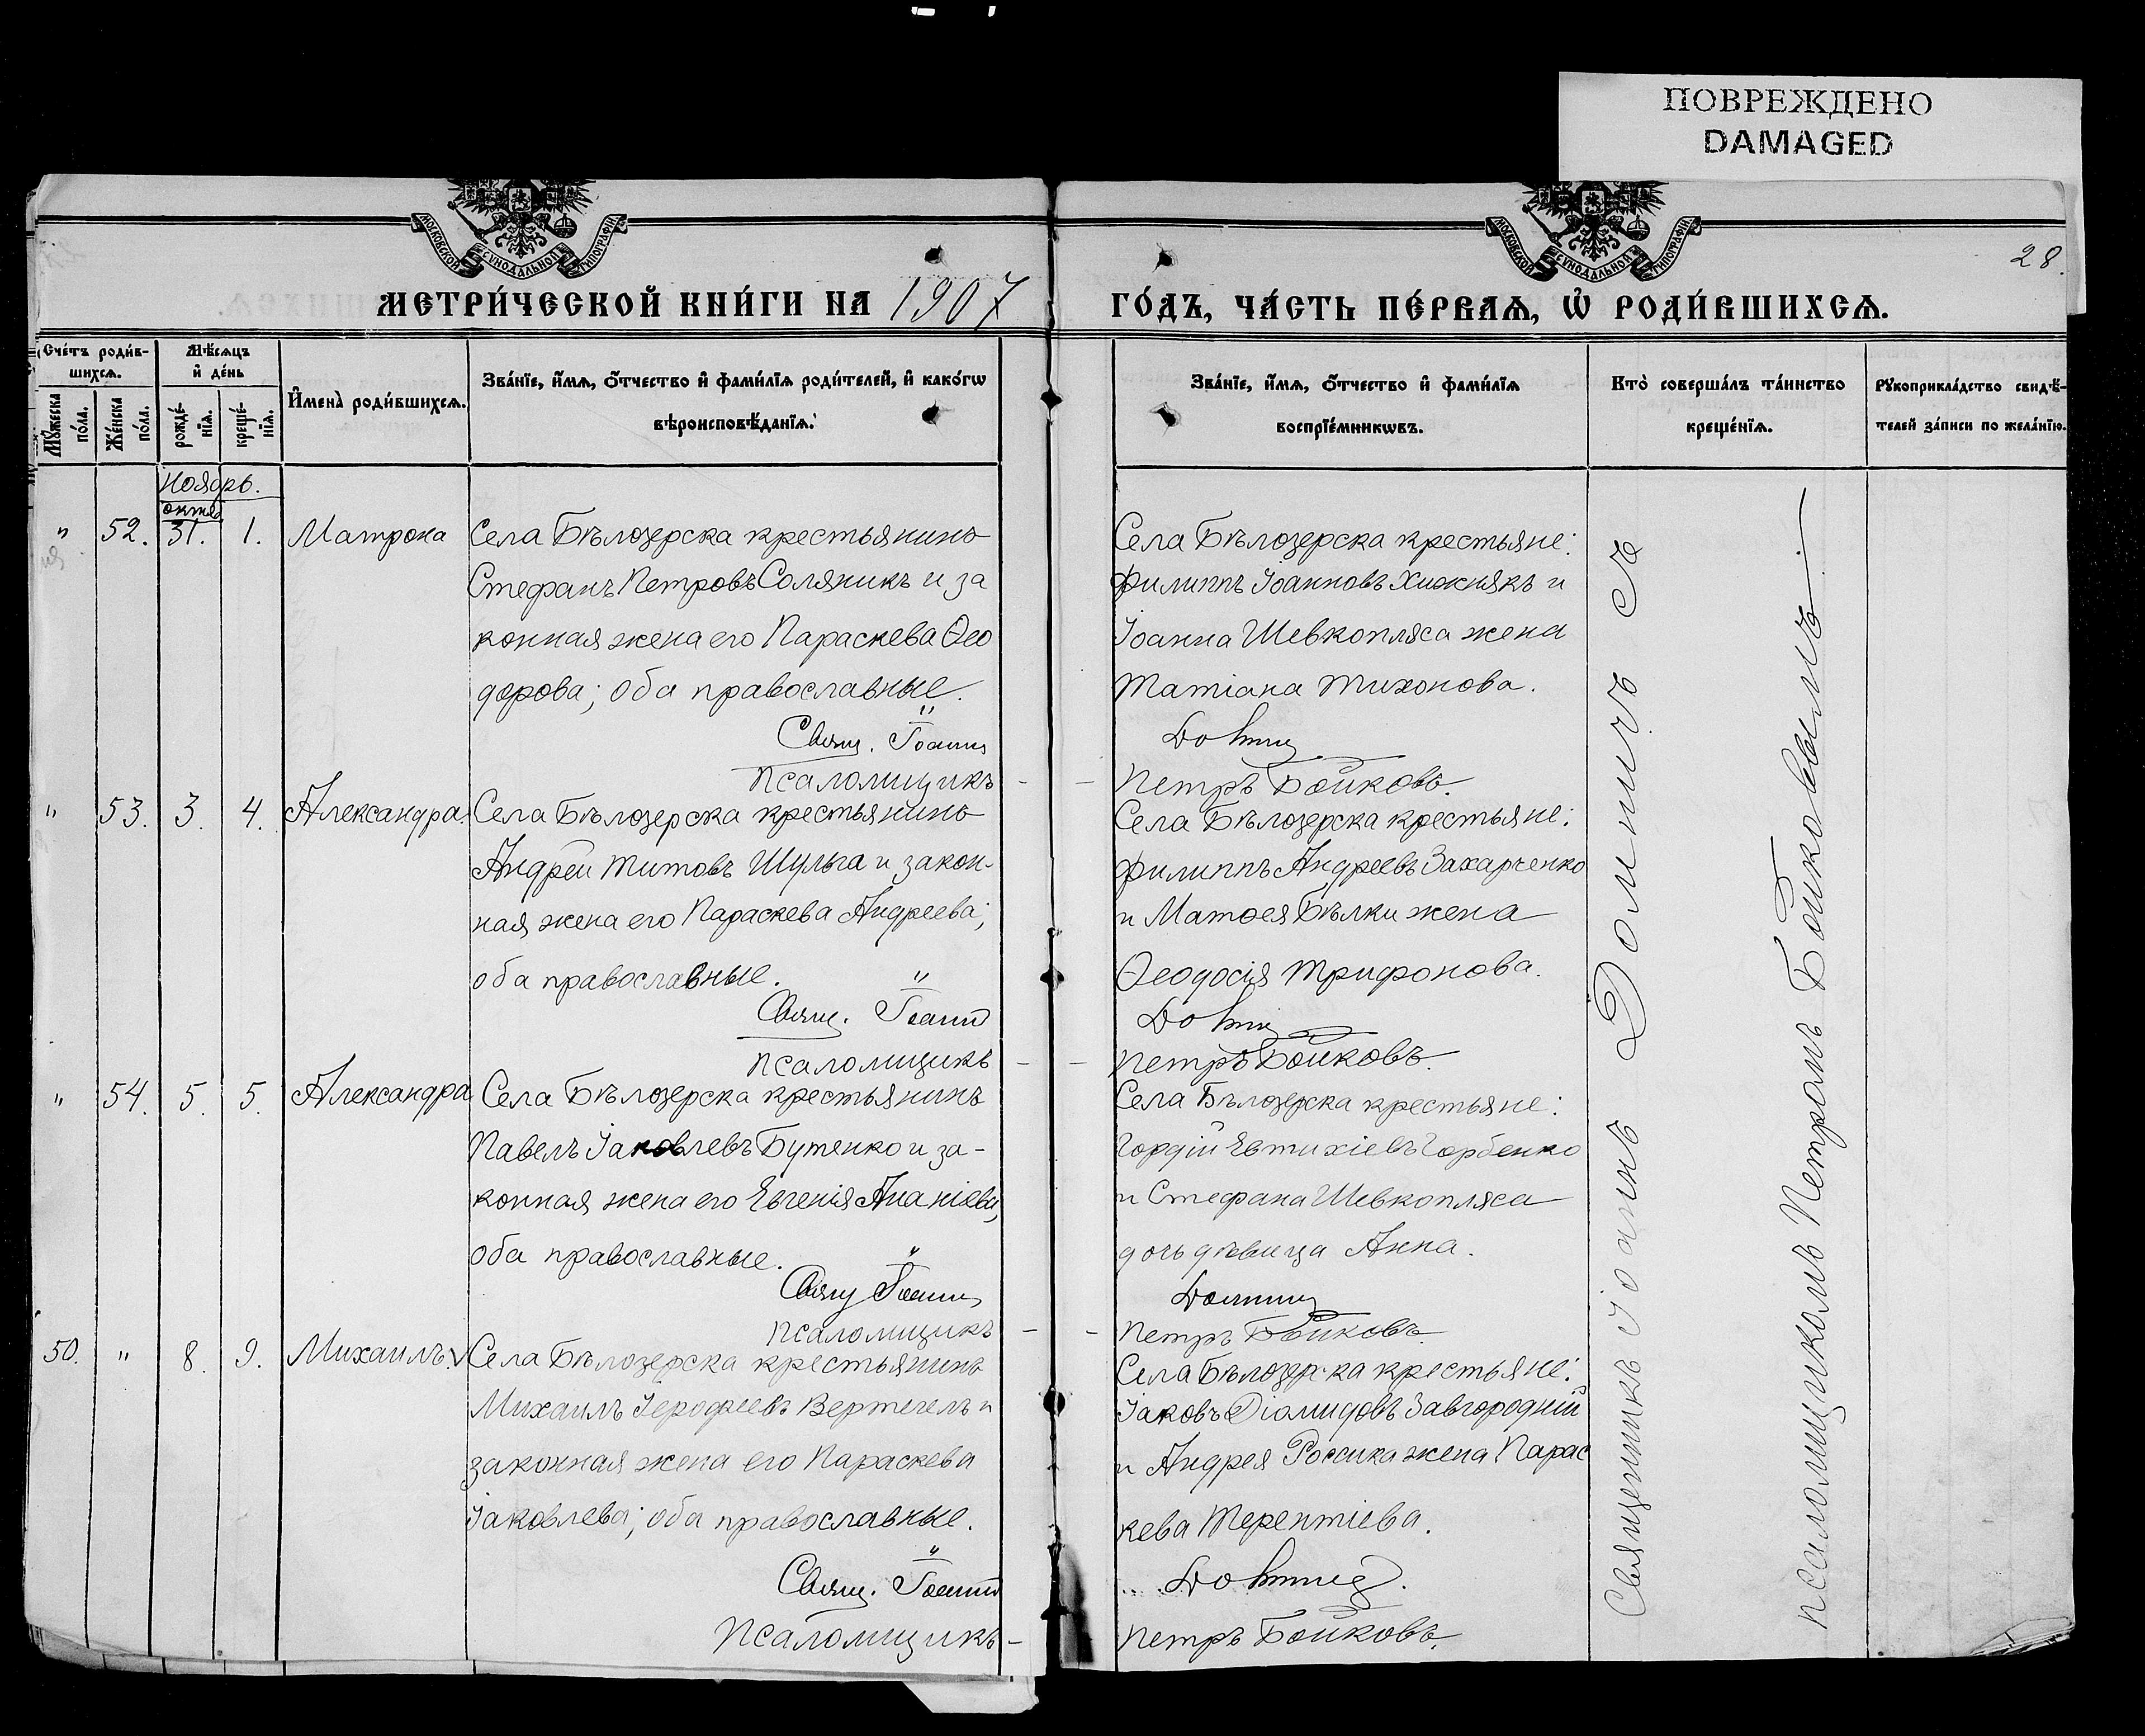 ПОВРЕЖДЕНО
DAMAGED
МОСКОВСКОЙ СѴНОДАЛЬНОЙ ТИПОГРАФІИ
МОСКОВСКОЙ СѴНОДАЛЬНОЙ ТИПОГРАФІИ
28.
МЕТРИ́ЧЕСКОЙ КНИ́ГИ НА 1907
ГО́ДЪ, ЧА́СТЬ ПЕ́РВАѦ, Ѡ҆ РОДИ́ВШИХСѦ.
Сче́тъ роди́в-
шихсѧ.
Мꙋ́жеска по́ла.
Же́нска по́ла.
Мѣ́сѧцъ
и҆ де́нь
рожде́-нїѧ.
креще́-нїѧ.
И҆мена̀ роди́вшихсѧ.
Зва́нїе, и҆́мѧ, ѻ҆́тчество и҆ фами́лїѧ роди́телей, и҆ како́гѡ
вѣроисповѣ́данїѧ.
Зва́нїе, и҆́мѧ, ѻ҆́тчество и҆ фами́лїѧ
воспрїе́мникѡвъ.
Кто̀ соверша́лъ та́инство
креще́нїѧ.
Рꙋкоприкла́дство свидѣ́-
телей за́писи по жела́нїю.
Ноябрь.
октяб
" 52. 31. 1. Матрона
Села Бѣлозерска крестьянинъ
Стефанъ Петровъ Соляникъ и за
конная жена его Параскева Ѳео
дорова; оба православные.
Свящ. Іоаннъ
Псаломщикъ
Села Бѣлозерска крестьяне:
Филиппъ Іоанновъ Хижнякъ и
Іоанна Шевкопляса жена
Татіана Тихонова.
Петръ Бойковъ.
" 53. 3. 4. Александра.
Села Бѣлозерска крестьянинъ
Андрей Титовъ Шульга и закон-
ная жена его Параскева Андреева;
оба православные.
Свящ. Іоаннъ
Псаломщикъ
Села Бѣлозерска крестьяне:
Филиппъ Андреевъ Захарченко
и Матѳея Бѣлки жена
Ѳеодосія Трифонова.
Петръ Бойковъ.
" 54. 5. 5. Александра
Села Бѣлозерска крестьянинъ
Павелъ Іаковлевъ Бутенко и за-
конная жена его Евгенія Ананіева,
оба православные.
Свящ Іоаннъ
Псаломщикъ
Села Бѣлозерска крестьяне:
Гордій Евтихіевъ Горбенко
и Стефана Шевкопляса
дочь дѣвица Анна.
Петръ Бойковъ.
50. " 8. 9. Михаилъ.
Села Бѣлозерска крестьянинъ
Михаилъ Іерофеевъ Вертегелъ и
законная жена его Параскева
Іаковлева; оба православные.
Свящ. Іоаннъ
Псаломщикъ-
Села Бѣлозерска крестьяне:
Іаковъ Діомидовъ Завгородній
и Андрея Россика жена Парас
кева Терентіева.
Петръ Бойковъ.
Священникъ Іоаннъ Долничъ съ
псаломщикомъ Петромъ Бойковымъ.